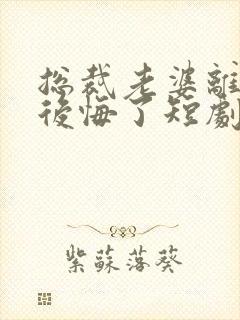 總裁老婆離
後悔了短劇
紫蘇落葵